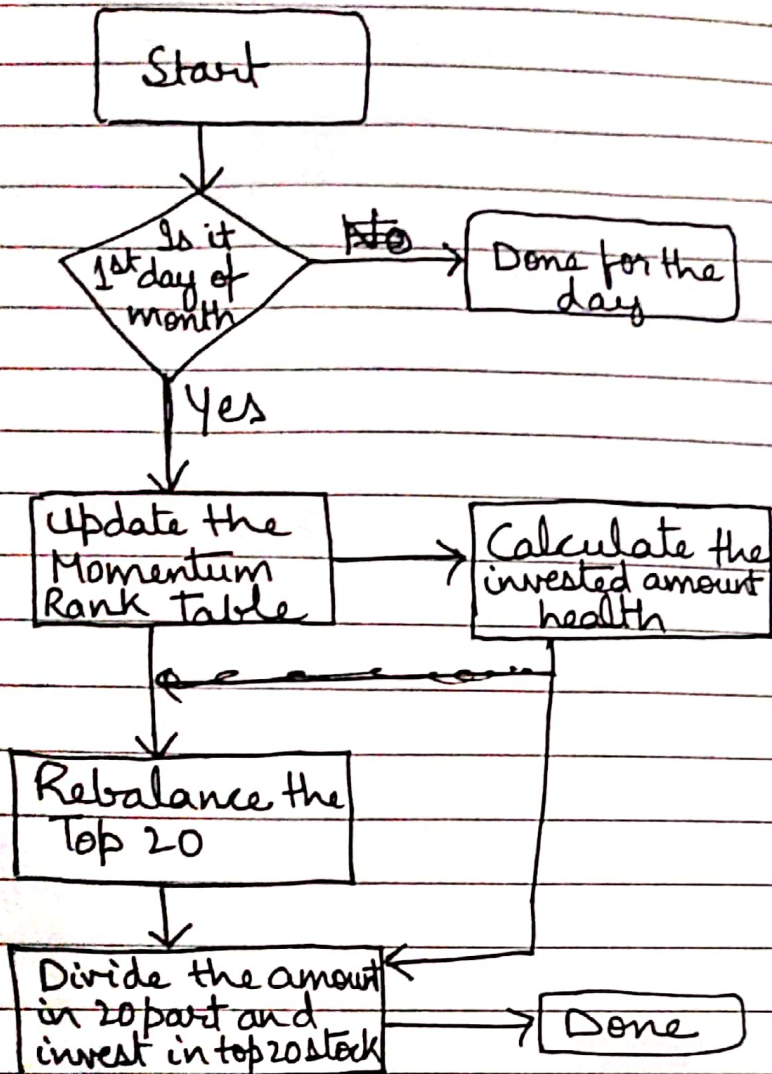 Start
Is it
1st day of
month
No
Done for the
day
Yes
Update the
Momentum
Rank Table
Calculate the
invested amount
health
Rebalance the
Top 20
Divide the amount
in 20 part and
invest in top 20 stock
Done